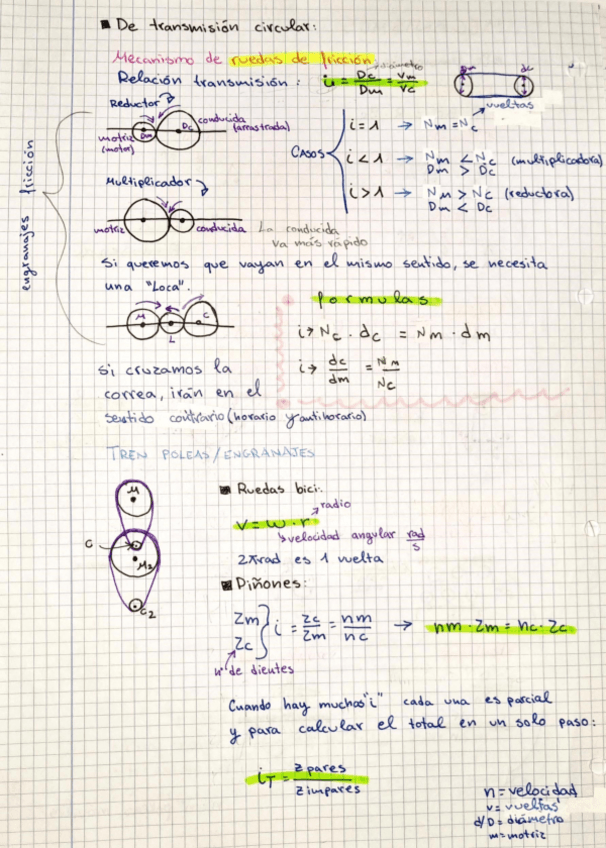 ■ De transmisión circular:
Mecanismo de ruedas de fricción
Relación transmisión: i = Dc/Dm = Vm/Vc
diámetro
Dm dc
vueltas
Reductor
conducida
(arrastrada)
motriz
(motor)
Dm Dc
engranajes fricción
Casos
i = 1 → Nm = Nc
i < 1 → Nm < Nc (multiplicadora)
Dm > Dc
i > 1 → Nm > Nc (reductora)
Dm < Dc
Multiplicador
motriz conducida
La conducida
va más rápido
Si queremos que vayan en el mismo sentido, se necesita
una "Loca".
M L C
formulas
i → Nc · dc = Nm · dm
i → dc/dm = Nm/Nc
si cruzamos la
correa, irán en el
sentido contrario (horario y antihorario)
TREN POLEAS/ENGRANAJES
M
C
M2
C2
■ Ruedas bici:
radio
V = ω · r
velocidad angular rad/s
2πrad es 1 vuelta
■ Piñones:
Zm
Zc
i = Zc/Zm = nm/nc → nm · Zm = nc · Zc
nº de dientes
Cuando hay muchos "i" cada una es parcial
y para calcular el total en un solo paso:
iT = Z pares/Z impares
n = velocidad
v = vueltas
d/D = diámetro
m = motriz